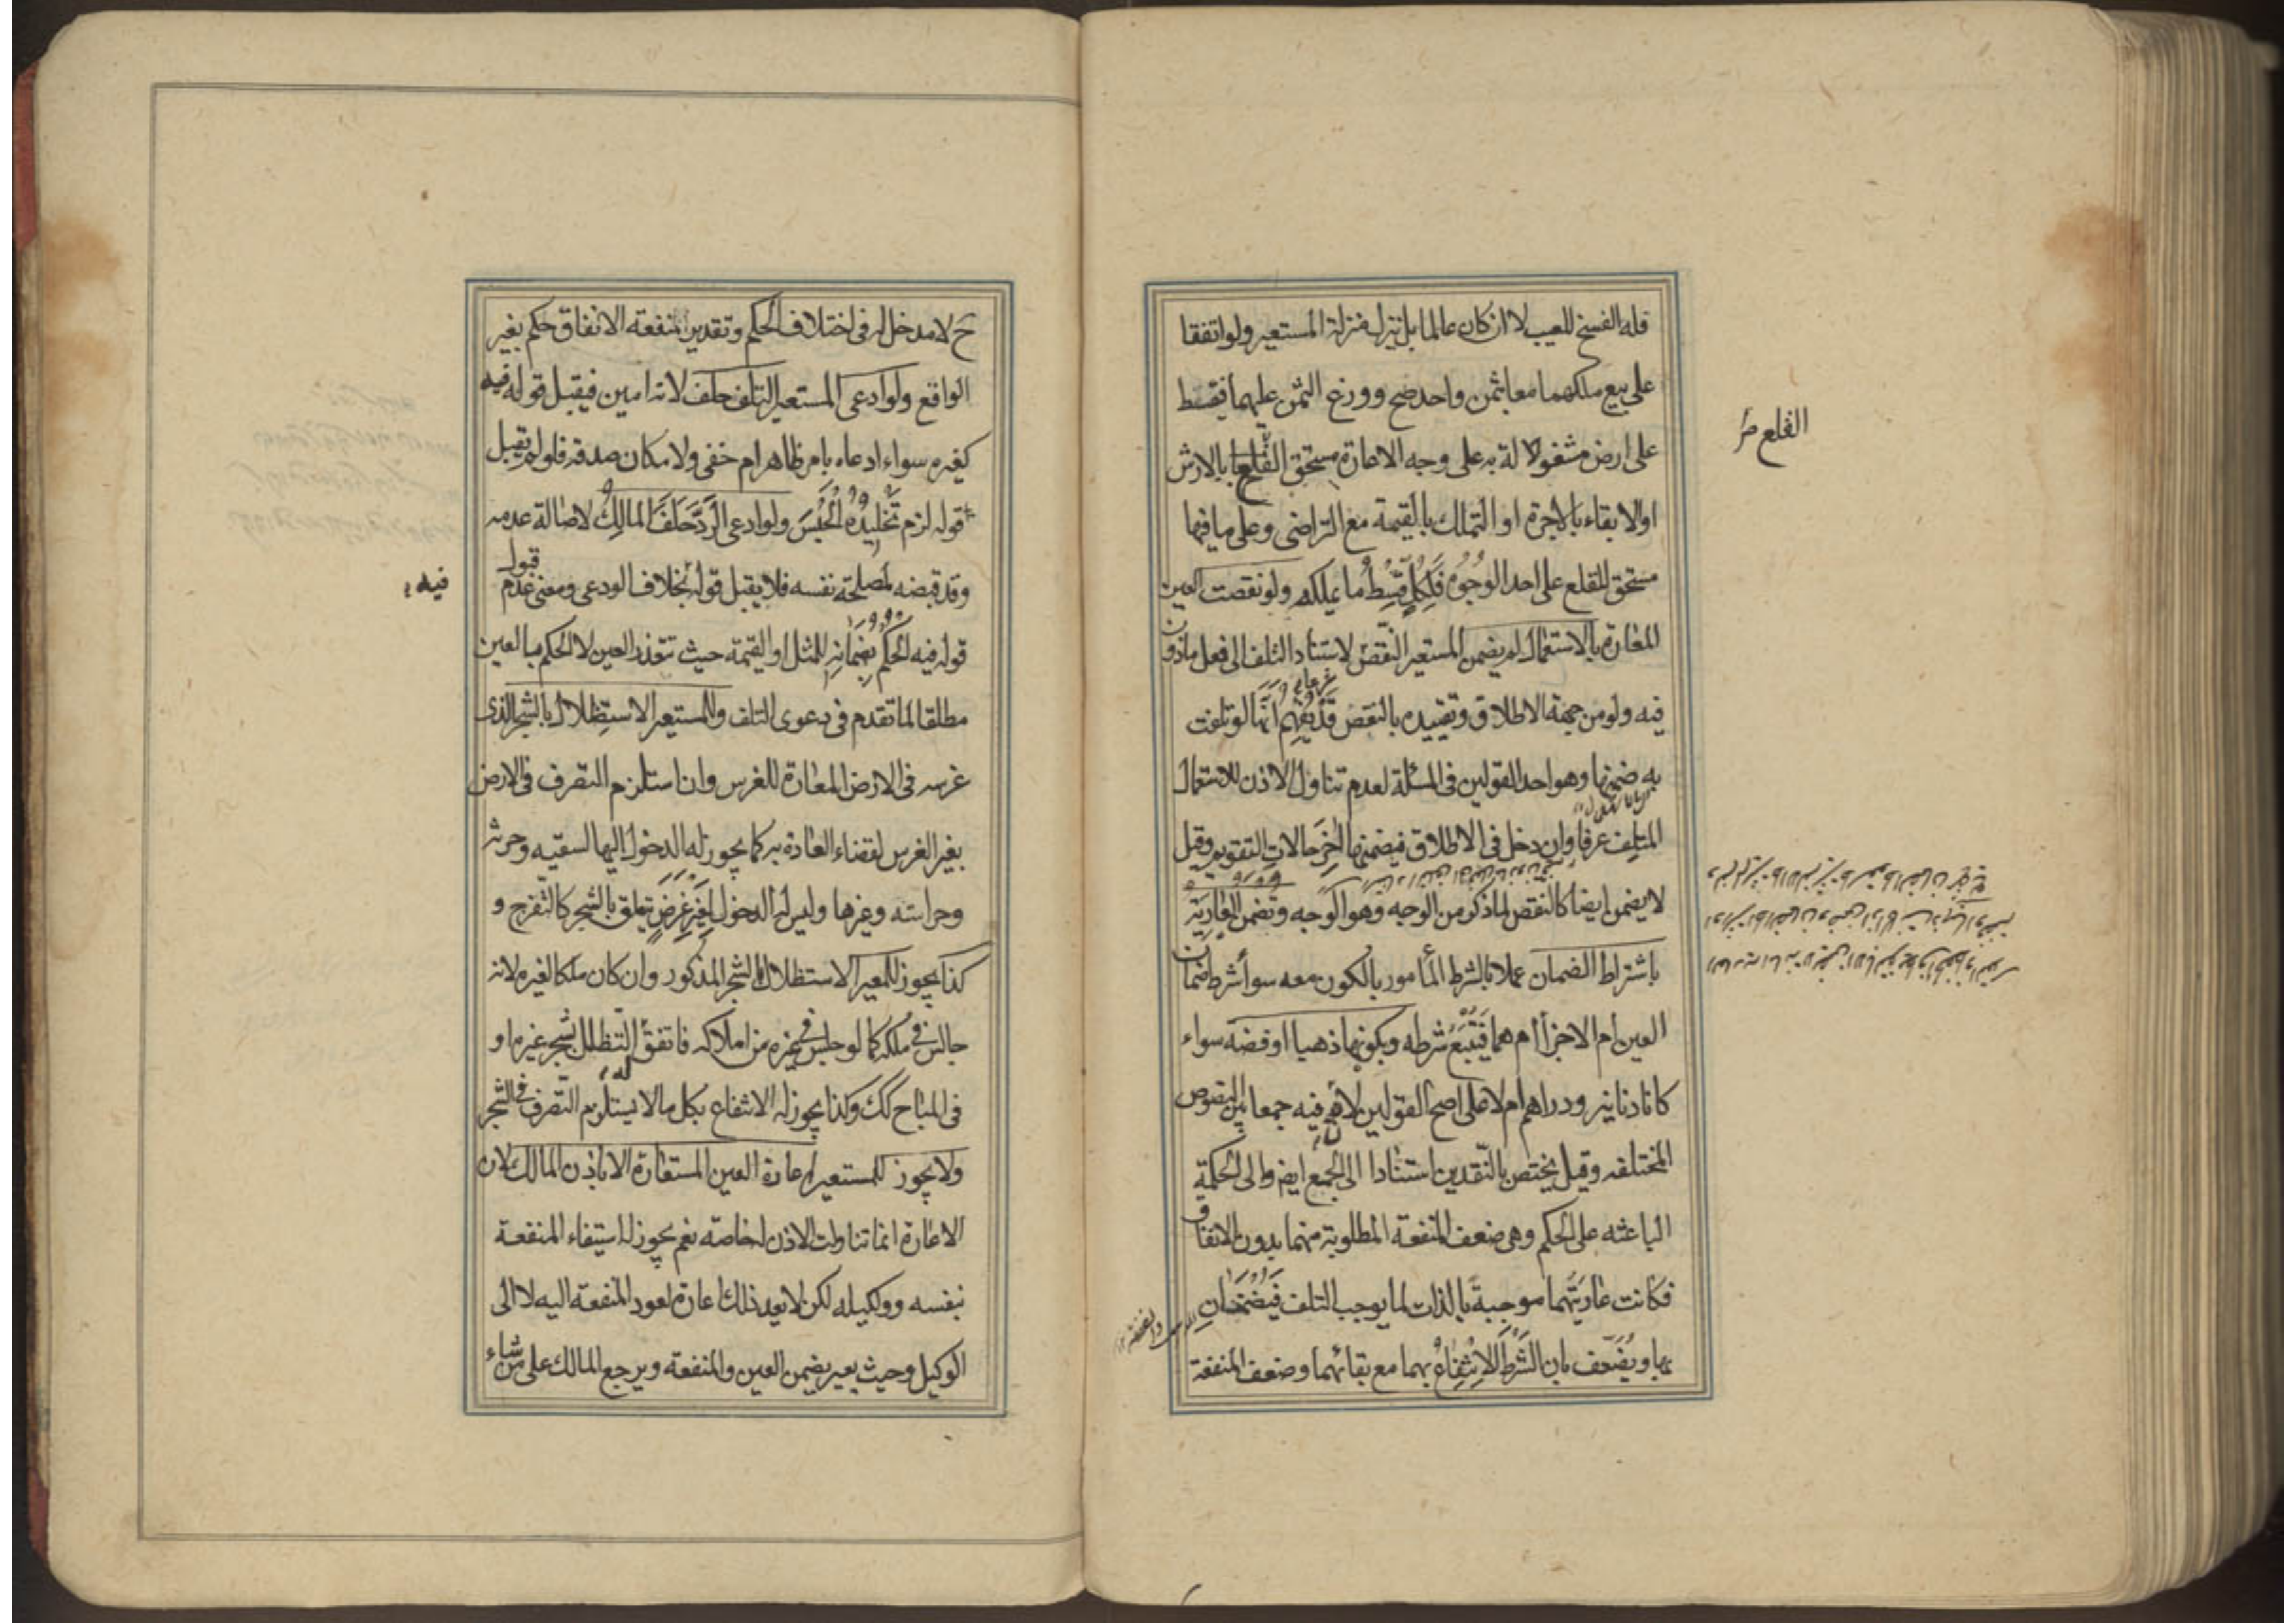 فله الفسخ للعيب لا ان كان عالما بل ينزل منزلة المستعير ولو اتفقا
على بيع ملكهما معا بثمن واحد صح ووزع الثمن عليهما فيقسط
على ارض مشغولة به على وجه الاعارة مستحق القلع بالارش
او الابقاء بالاجرة او التملك بالقيمة مع التراضى وعلى ما فيها
مستحق للقلع على احد الوجوه فلكل قسط ما يملكه ولو نقصت العين
المعارة بالاستعمال لم يضمن المستعير النقص لاستناد التلف الى فعل ماذون
فيه ولو من جهة الاطلاق وتقييده بالنقص قد يفهم انها لو تلفت
به ضمنها وهو احد القولين فى المسئلة لعدم تناول الاذن للاستعمال
المتلف عرفا وان دخل فى الاطلاق فيضمنها اخر حالات التقويم وقيل
لا يضمن ايضا كالنقص لما ذكر من الوجه وهو الوجه وتضمن العارية
باشتراط الضمان عملا بالشرط المأمور بالكون معه سواء شرط ضمان
العين ام الاجزاء ام هما فيتبع شرطه وبكونها ذهبا او فضة سواء
كانا دنانير ودراهم ام لا على اصح القولين لأن فيه جمعا بين النصوص
المختلفه وقيل يختص بالنقدين استنادا الى الجمع ايض والى الحكمة
الباعثه على الحكم وهى ضعف المنفعة المطلوبة منهما بدون الانفاق
فكانت عاريتهما موجبة بالذات لما يوجب التلف فيضمنان
بها ويضعف بان الشرط الانتفاع بهما مع بقائهما وضعف المنفعة
القلع
ح لا مدخل له فى اختلاف الحكم وتقدير منفعة الانفاق حكم بغير
الواقع ولو ادعى المستعير التلف حلف لانه امين فيقبل قوله فيه
كغيره سواء ادعاه بامر ظاهر ام خفى ولامكان صدقه فلو لم يقبل
قوله لزم تخليده الحبس ولو ادعى الرد حلف المالك لاصالة عدمه
وقد قبضه لمصلحة نفسه فلا يقبل قوله بخلاف الودعى ومعنى عدم قبول
قوله فيه الحكم بضمانه للمثل او القيمة حيث تتعذر العين لا الحكم بالعين
مطلقا لما تقدم فى دعوى التلف وللمستعير الاستظلال بالشجر الذى
غرسه فى الارض المعارة للغرس وان استلزم التصرف فى الارض
بغير الغرس لقضاء العادة به كما يجوز له الدخول اليها لسقيه وحرثه
وحراسته وغيرها وليس له الدخول لغير غرض يتعلق بالشجر كالتفرج و
كذا يجوز للمعير الاستظلال بالشجر المذكور وان كان ملكا لغيره لانه
جالس فى ملكه كما لو جلس فى غيره من املاكه فاتفق له التظلل بشجر غيره او
فى المباح كك وكذا يجوز له الانتفاع بكل ما لا يستلزم التصرف فى الشجر
ولا يجوز للمستعير اعارة العين المستعارة الا باذن المالك لان
الاعارة انما تناولت الاذن له خاصة نعم يجوز له استيفاء المنفعة
بنفسه ووكيله لكن لا يعد ذلك اعارة لعود المنفعة اليه لا الى
الوكيل وحيث يعير يضمن العين والمنفعة ويرجع المالك على من شاء
فيه